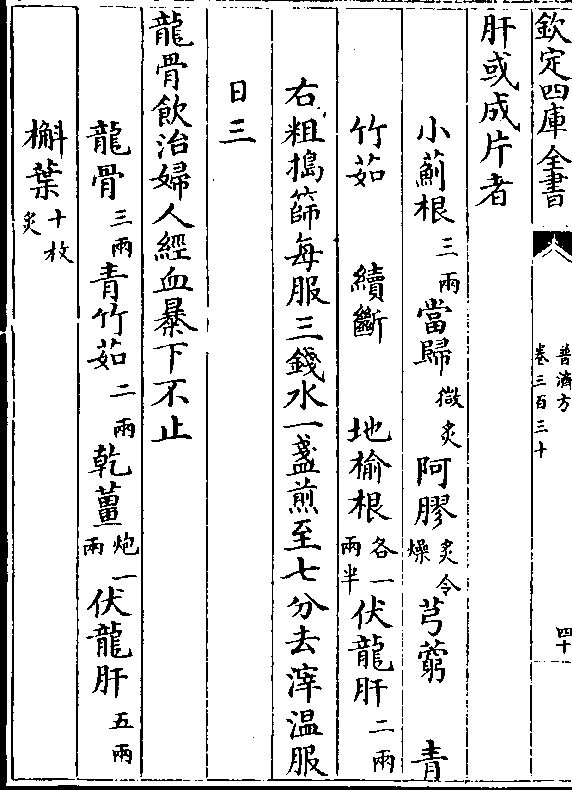 欽定四庫全書
普濟方
卷三百三十
四十
肝或成片者
小薊根三兩當歸微炙阿膠炙令燥芎藭青
竹茹續斷地榆根各一兩半伏龍肝二兩
右粗搗篩每服三錢水一盞煎至七分去滓温服
日三
龍骨飲治婦人經血暴下不止
龍骨三兩青竹茹二兩乾薑炮一兩伏龍肝五兩
槲葉十枚炙